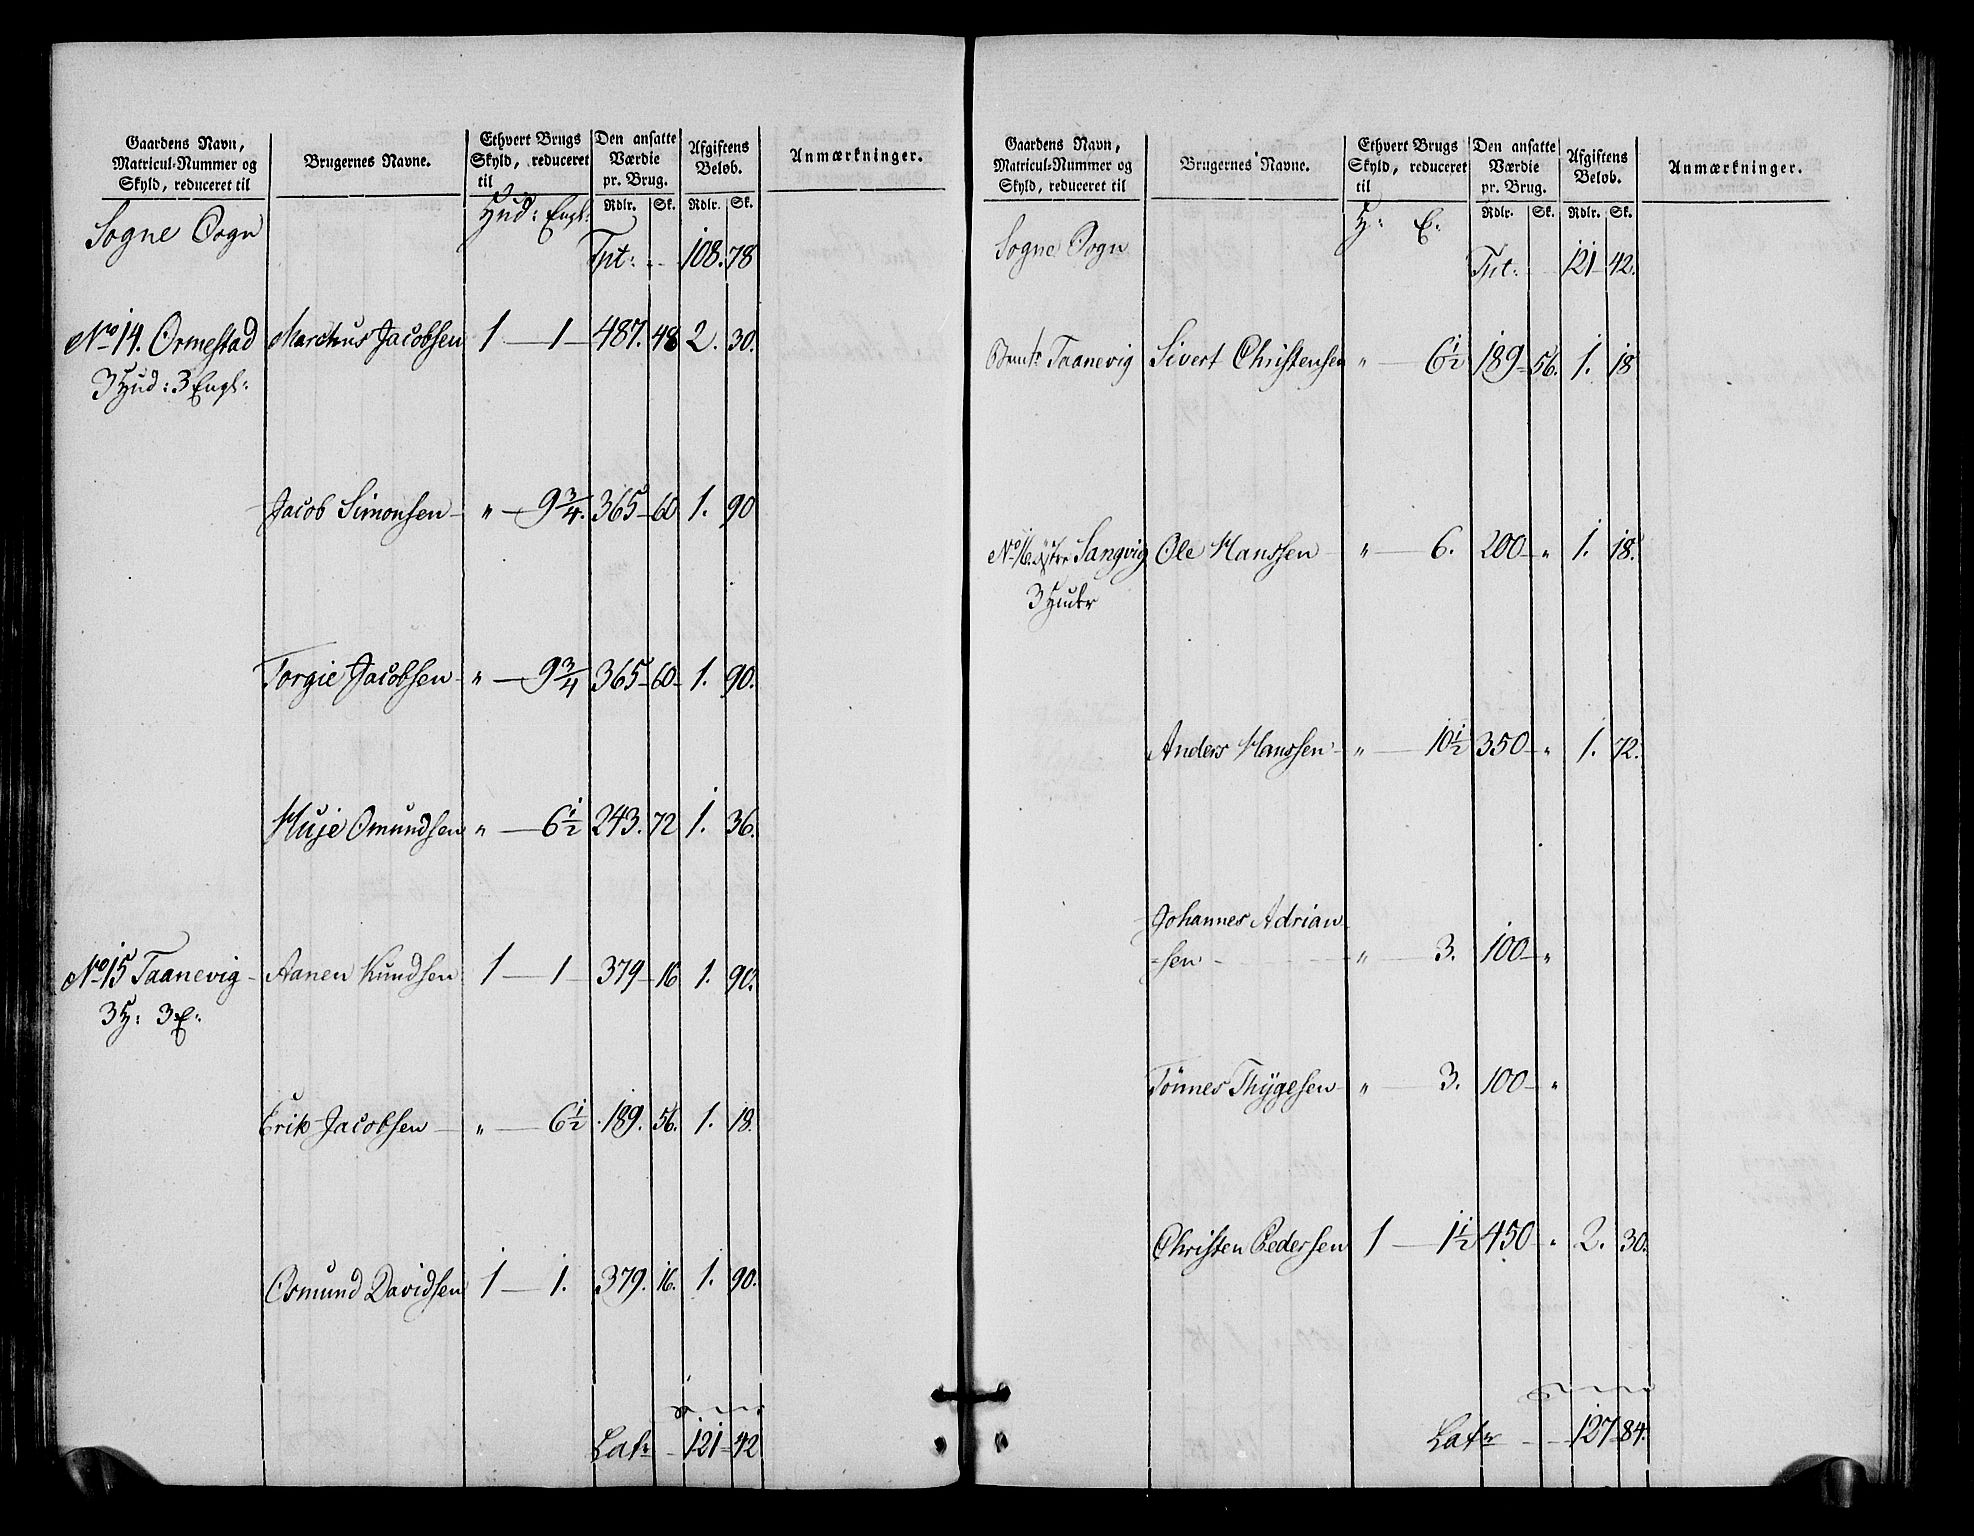 Gaardens Navn, Matricul-Nummer og Skyld, reduceret til | Brugernes Navne. | Ethvert Brugs Skyld, reduceret til | Den ansatte Værdie pr. Brug. | Afgiftens Beløb. | Anmærkninger.
Rdlr. | Sk. | Rdlr. | Sk.
Sogne Sogn | Hud: Engl:
Tpt: 108. 78
No 14. Ormestad Marchus Jacobsen 1 — 1 — 487. 48 2. 30.
3 Hud: 3 Engl:
Jacob Simonsen — " — 9 3/4. 365 — 60 1. 90
Torgie Jacobsen — " — 9 3/4 365 — 60 — 1. 90.
Huje Omundsen " — 6 1/2 243. 72 1. 36.
No 15 Taanevig — Aanen Knudsen 1 — 1 — 379 — 16 1. 90.
3 H: 3 E:
Erik Jacobsen — " — 6 1/2 189. 56. 1. 18.
Osmund Davidsen 1 — 1. 379. 16. 1. 90.
Latr 121 — 42
Gaardens Navn, Matricul-Nummer og Skyld, reduceret til | Brugernes Navne. | Ethvert Brugs Skyld, reduceret til | Den ansatte Værdie pr. Brug. | Afgiftens Beløb. | Anmærkninger.
Rdlr. | Sk. | Rdlr. | Sk.
H: E:
Sogne Sogn
Tpt: 121 — 42.
Taanevig Sivert Christensen " — 6 1/2 189 — 56. 1. 18
No 16. østre Sangvig Ole Hanssen — " — 6. 200 — " 1. 18.
3 Huder
Anders Hanssen — " — 10 1/2 350 — " 1. 72.
Johannes Adrian-
-sen — " — 3. 100 — "
Tönnes Thÿgesen " — 3. 100 — "
Christen Pedersen 1 — 1 1/2 450 — " 2. 30.
Latr 127 — 84.